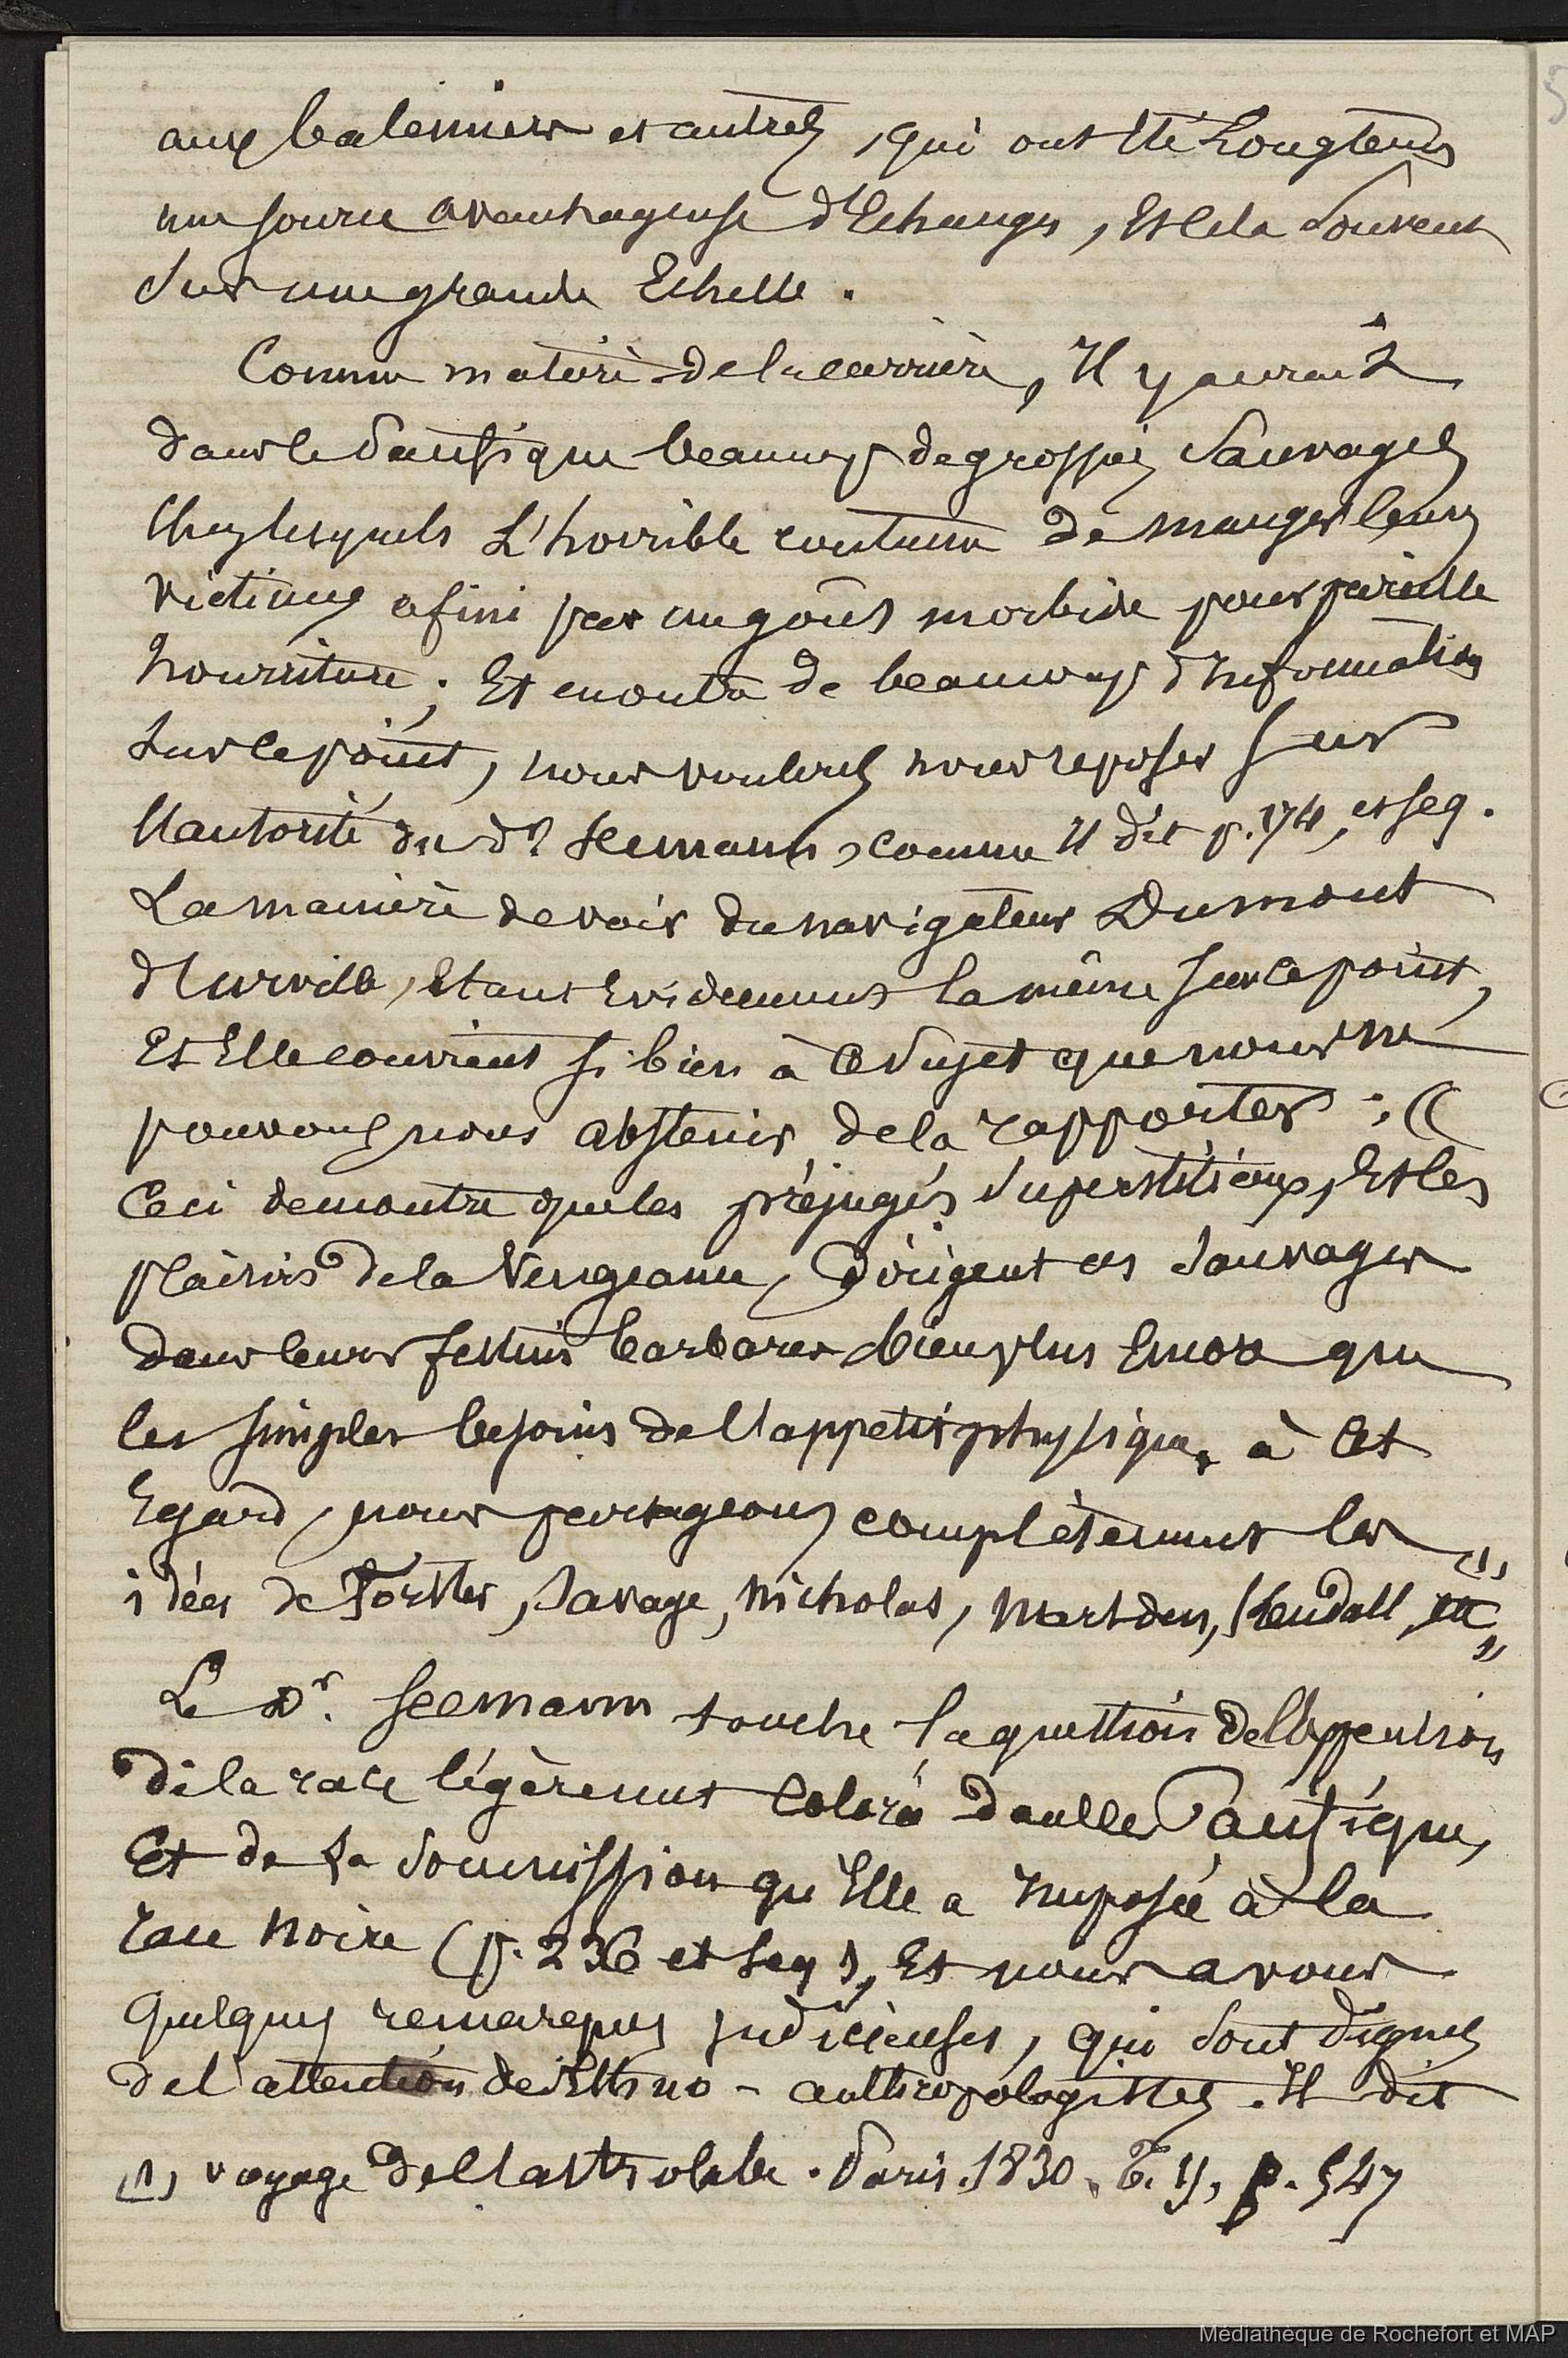 aux baleiniers et autres, qui ont été Longtems
une source avantageuse d'Echanges, Et cela souvent
sur une grande Echelle.
Comme matière de la carrière, Il y aurait
dans le Pacifique beaucoup de grossiers Sauvages
chez lesquels L'horrible coutume de manger leurs
victimes a fini par un goût morbide pour pareille
nourriture; Et en outre de beaucoup d'Informations
sur le point, nous voulons nous reposer sur
l'autorité du Dr Seemann, comme Il dit p. 174, et seq.
La manière de voir du navigateur Dumont
d'Urville, Etant Evidemment la même sur ce point,
Et Elle convient si bien à ce sujet que nous ne
pouvons nous abstenir de la rapporter: ((
Ceci demontre que les préjugés superstitieux, Et les
plaisirs de la Vengeance, Dirigent ces sauvages
dans leurs festins barbares bien plus Encore que
les simples besoins de l'appetit physique, à cet
Egard, nous partageons complètement les
idées de Forster, Savage, Nicholas, Marsden, Kendall, etc (1) "
Le Dr. Seemann touche la question de l'apparition
de la race légèrement colorée dans le Pacifique,
Et de la soumission qu'Elle a Imposée à la
race noire (p. 236 et seq), Et nous avons
quelques remarques judicieuses, qui sont dignes
de l'attention des Ethno-anthropologistes. Il dit
(1) voyage de l'astrolabe. Paris. 1830. T. ij, p. 547
Médiathèque de Rochefort et MAP